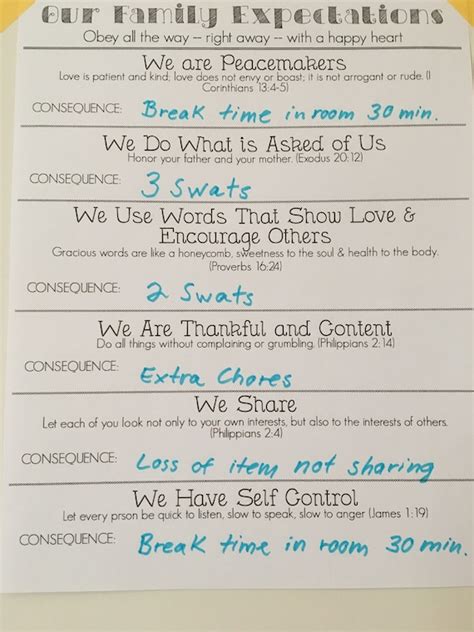 Our Family Expectations
Obey all the way -- right away -- with a happy heart
We are Peacemakers
Love is patient and kind; love does not envy or boast; it is not arrogant or rude. (1
Corinthians 13:4-5)
CONSEQUENCE: Break time in room 30 min.
We Do What is Asked of Us
Honor your father and your mother. (Exodus 20:12)
CONSEQUENCE: 3 Swats
We Use Words That Show Love &
Encourage Others
Gracious words are like a honeycomb, sweetness to the soul & health to the body.
(Proverbs 16:24)
CONSEQUENCE: 2 Swats
We Are Thankful and Content
Do all things without complaining or grumbling. (Philippians 2:14)
CONSEQUENCE: Extra Chores
We Share
Let each of you look not only to your own interests, but also to the interests of others.
(Philippians 2:4)
CONSEQUENCE: Loss of item not sharing
We Have Self Control
Let every prson be quick to listen, slow to speak, slow to anger (James 1:19)
CONSEQUENCE: Break time in room 30 min.